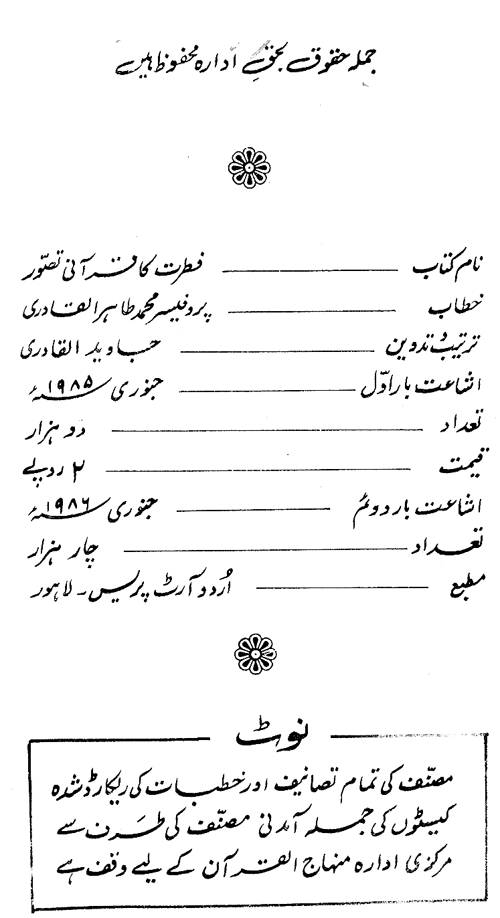 جملہ حقوق بحقِ ادارہ محفوظ ہیں
نام کتاب ——— فطرت کا قرآنی تصوّر
خطاب ——— پروفیسر محمد طاہر القادری
ترتیب و تدوین ——— جاوید القادری
اشاعت بار اوّل ——— جنوری ۱۹۸۵ء
تعداد ——— دو ہزار
قیمت ——— ۲ روپے
اشاعت بار دوئم ——— جنوری ۱۹۸۶ء
تعداد ——— چار ہزار
مطبع ——— اُردو آرٹ پریس۔ لاہور
نوٹ
مصنّف کی تمام تصانیف اور خطبات کی ریکارڈ شدہ
کیسٹوں کی جملہ آمدنی مصنّف کی طرف سے
مرکزی ادارہ منہاج القرآن کے لیے وقف ہے